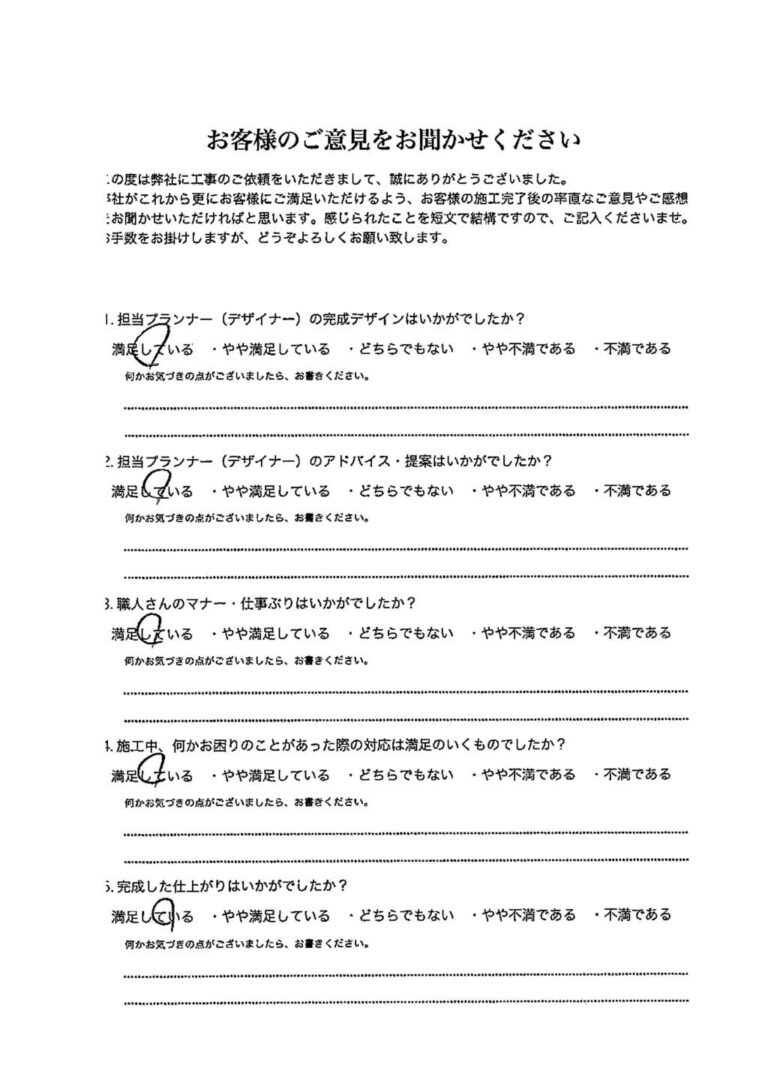 お客様のご意見をお聞かせください
の度は弊社に工事のご依頼をいただきまして、誠にありがとうございました。
社がこれから更にお客様にご満足いただけるよう、お客様の施工完了後の率直なご意見やご感想
お聞かせいただければと思います。感じられたことを短文で結構ですので、ご記入くださいませ。
手数をお掛けしますが、どうぞよろしくお願い致します。
1. 担当プランナー（デザイナー）の完成デザインはいかがでしたか？
満足している ・やや満足している ・どちらでもない ・やや不満である ・不満である
何かお気づきの点がございましたら、お書きください。
2. 担当プランナー（デザイナー）のアドバイス・提案はいかがでしたか？
満足している ・やや満足している ・どちらでもない ・やや不満である ・不満である
何かお気づきの点がございましたら、お書きください。
3. 職人さんのマナー・仕事ぶりはいかがでしたか？
満足している ・やや満足している ・どちらでもない ・やや不満である ・不満である
何かお気づきの点がございましたら、お書きください。
4. 施工中、何かお困りのことがあった際の対応は満足のいくものでしたか？
満足している ・やや満足している ・どちらでもない ・やや不満である ・不満である
何かお気づきの点がございましたら、お書きください。
5. 完成した仕上がりはいかがでしたか？
満足している ・やや満足している ・どちらでもない ・やや不満である ・不満である
何かお気づきの点がございましたら、お書きください。